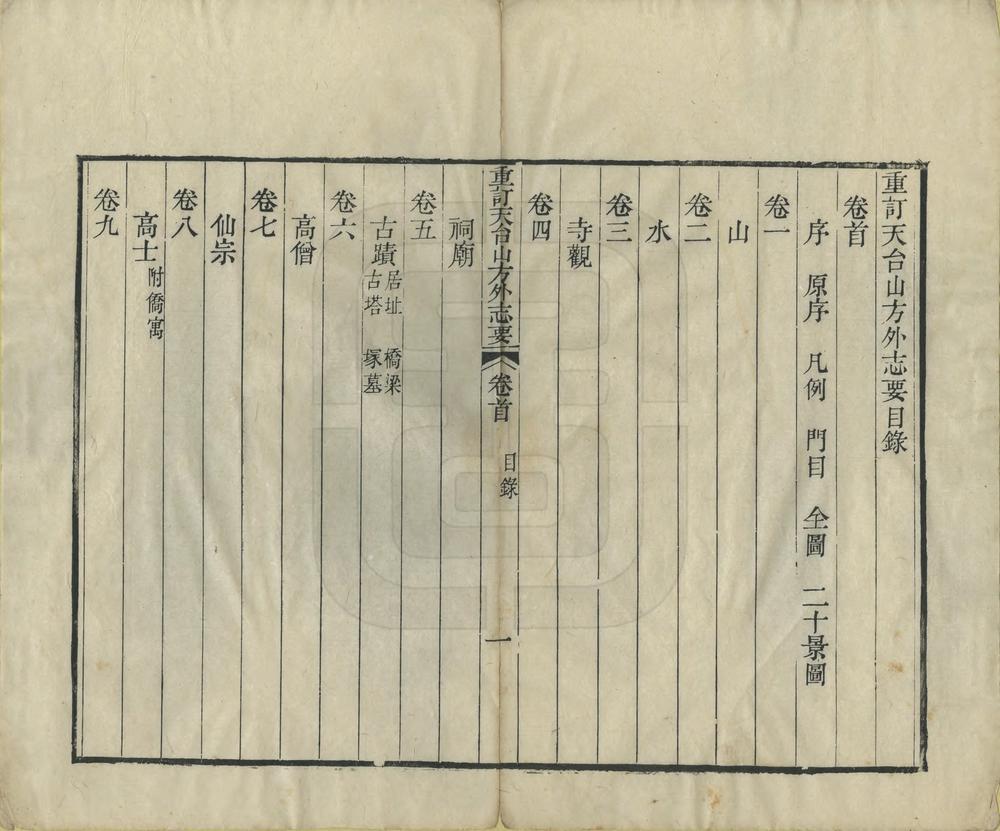 重訂天台山方外志要目錄
卷首
序 原序 凡例 門目 全圖 二十景圖
卷一
山
卷二
水
卷三
寺觀
卷四
重訂天台山方外志要 卷首 目錄 一
祠廟
卷五
古蹟 居址 橋梁 古塔 塚墓
卷六
高僧
卷七
仙宗
卷八
高士 附僑寓
卷九